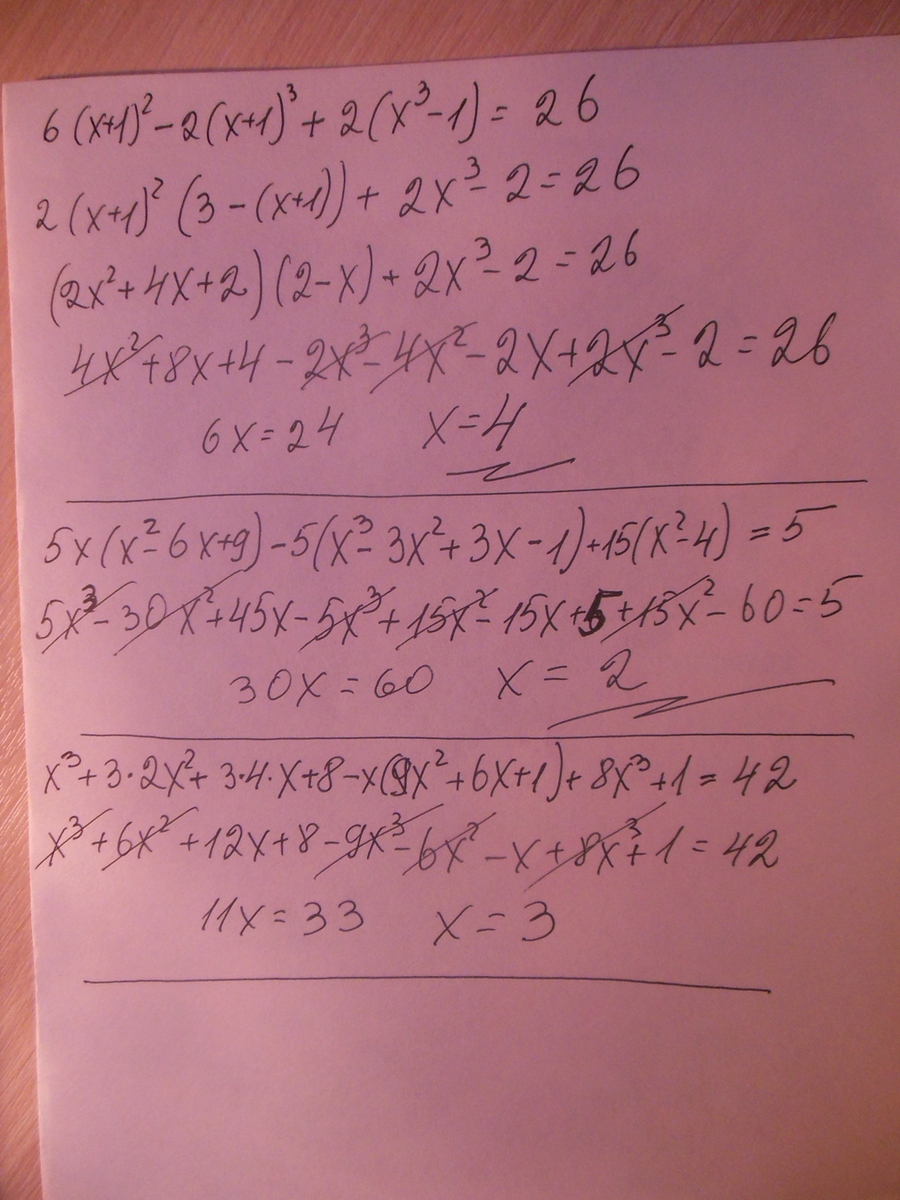 6(x+1)² - 2(x+1)³ + 2(x³-1) = 26
2(x+1)² (3-(x+1)) + 2x³ - 2 = 26
(2x²+4x+2)(2-x) + 2x³ - 2 = 26
4x² + 8x + 4 - 2x³ - 4x² - 2x + 2x³ - 2 = 26
6x = 24 x = 4
5x(x²-6x+9) - 5(x³-3x²+3x-1) + 15(x²-4) = 5
5x³ - 30x² + 45x - 5x³ + 15x² - 15x + 5 + 15x² - 60 = 5
30x = 60 x = 2
x³ + 3·2x² + 3·4·x + 8 - x(9x²+6x+1) + 8x³ + 1 = 42
x³ + 6x² + 12x + 8 - 9x³ - 6x² - x + 8x³ + 1 = 42
11x = 33 x = 3